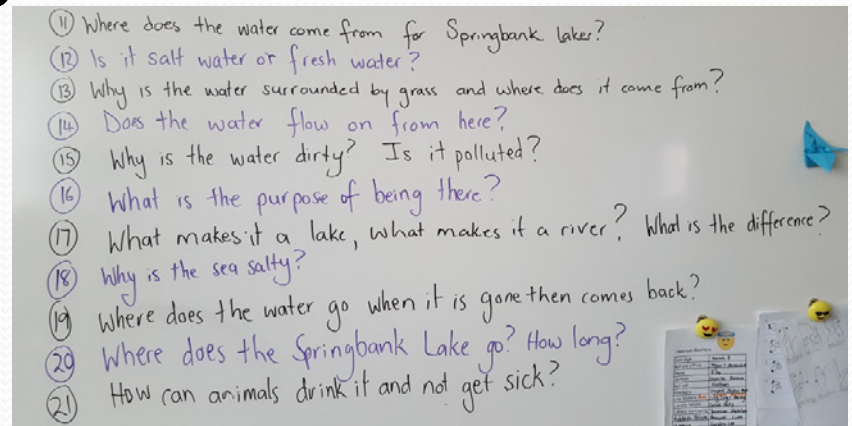 11 Where does the water come from for Springbank Lakes?
12 Is it salt water or fresh water?
13 Why is the water surrounded by grass and where does it come from?
14 Does the water flow on from here?
15 Why is the water dirty? Is it polluted?
16 What is the purpose of being there?
17 What makes it a lake, what makes it a river? What is the difference?
18 Why is the sea salty?
19 Where does the water go when it is gone then comes back?
20 Where does the Springbank Lake go? How long?
21 How can animals drink it and not get sick?